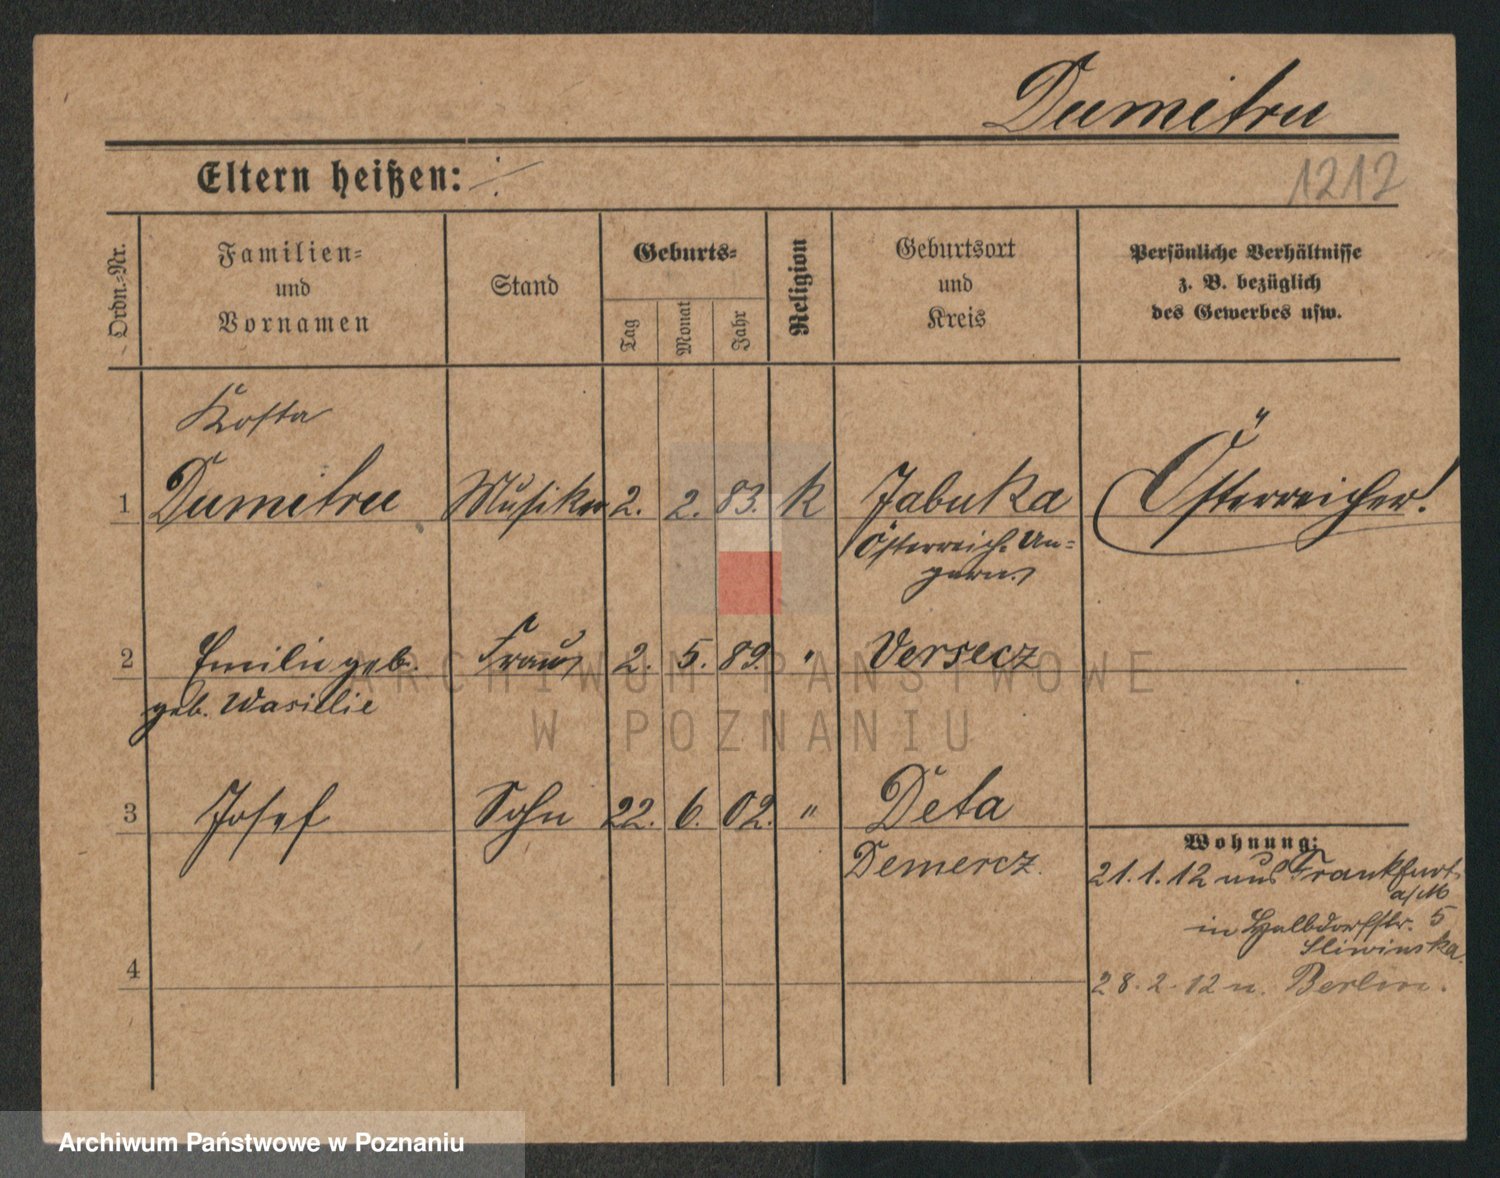 Dumitru
Eltern heißen: ·/·
1212
Ordn.-Nr.
Familien-
und
Vornamen
Stand
Geburts-
Tag
Monat
Jahr
Religion
Geburtsort
und
Kreis
Persönliche Verhältnisse
z. B. bezüglich
des Gewerbes usw.
Kosta
1 Dumitru Musiker 2. 2. 83. K Jabuka Österreicher!
Österreich. Un-
garn
2 Emilie geb. Frau 2. 5. 89. " Versecz
geb. Wasillie
3 Josef Sohn 22. 6. 02. " Deta
Demercz.
Wohnung:
21.1.12 aus Frankfurt
a/M
in Halbdorfstr. 5
Sliwinska.
4
28.2.12 n. Berlin.
ARCHIWUM PAŃSTWOWE
W POZNANIU
Archiwum Państwowe w Poznaniu